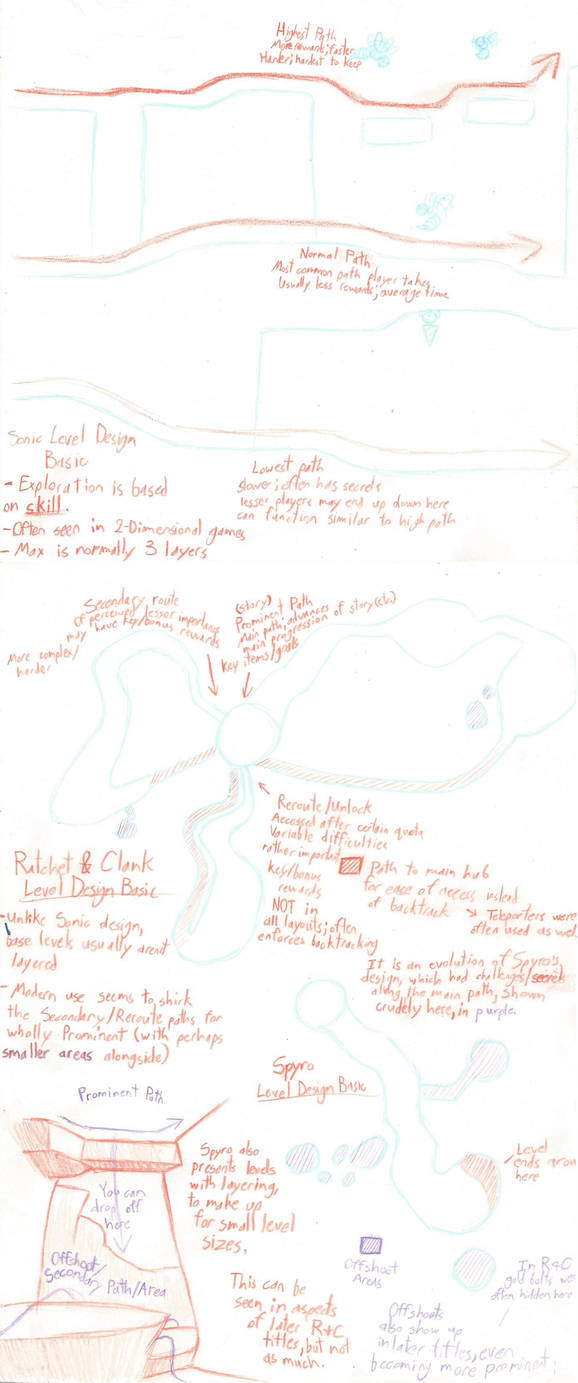 Highest Path
More rewards; faster
Harder; hardest to keep
Normal Path
Most common path player takes
Usually less rewards; average time
Sonic Level Design
Basic
- Exploration is based
on skill.
- Often seen in 2-Dimensional games
- Max is normally 3 layers
Lowest path
slower; often has secrets
lesser players may end up down here
can function similar to high path
Secondary route
Of perceived lesser importance
may have key/bonus rewards
More complex/
harder
(story)
Prominent Path
Main path; advances of story (etc)
main progression
key items/goals
Reroute/Unlock
Accessed after certain quota
Variable difficulties
rather important
key/bonus
rewards
NOT in
all layouts; often
enforces backtracking
Path to main hub
for ease of access instead
of backtrack
Teleporters were
often used as well
Ratchet & Clank
Level Design Basic
- Unlike Sonic design,
base levels usually arent
layered
- Modern use seems to shirk
the Secondary/Reroute paths for
wholly Prominent (with perhaps
smaller areas alongside)
It is an evolution of Spyro's
design, which had challenges/secrets
along the main path, shown
crudely here, in purple.
Spyro
Level Design Basic
Level
ends around
here
Prominent Path
You can
drop off
here
Offshoot/
Secondary Path/Area
Spyro also
presents levels
with layering,
to make up
for small level
sizes.
This can be
seen in aspects
of later R+C
titles, but not
as much.
Offshoot
Areas
In R+C
gold bolts were
often hidden here
Offshoots
also show up
in later titles, even
becoming more prominent;